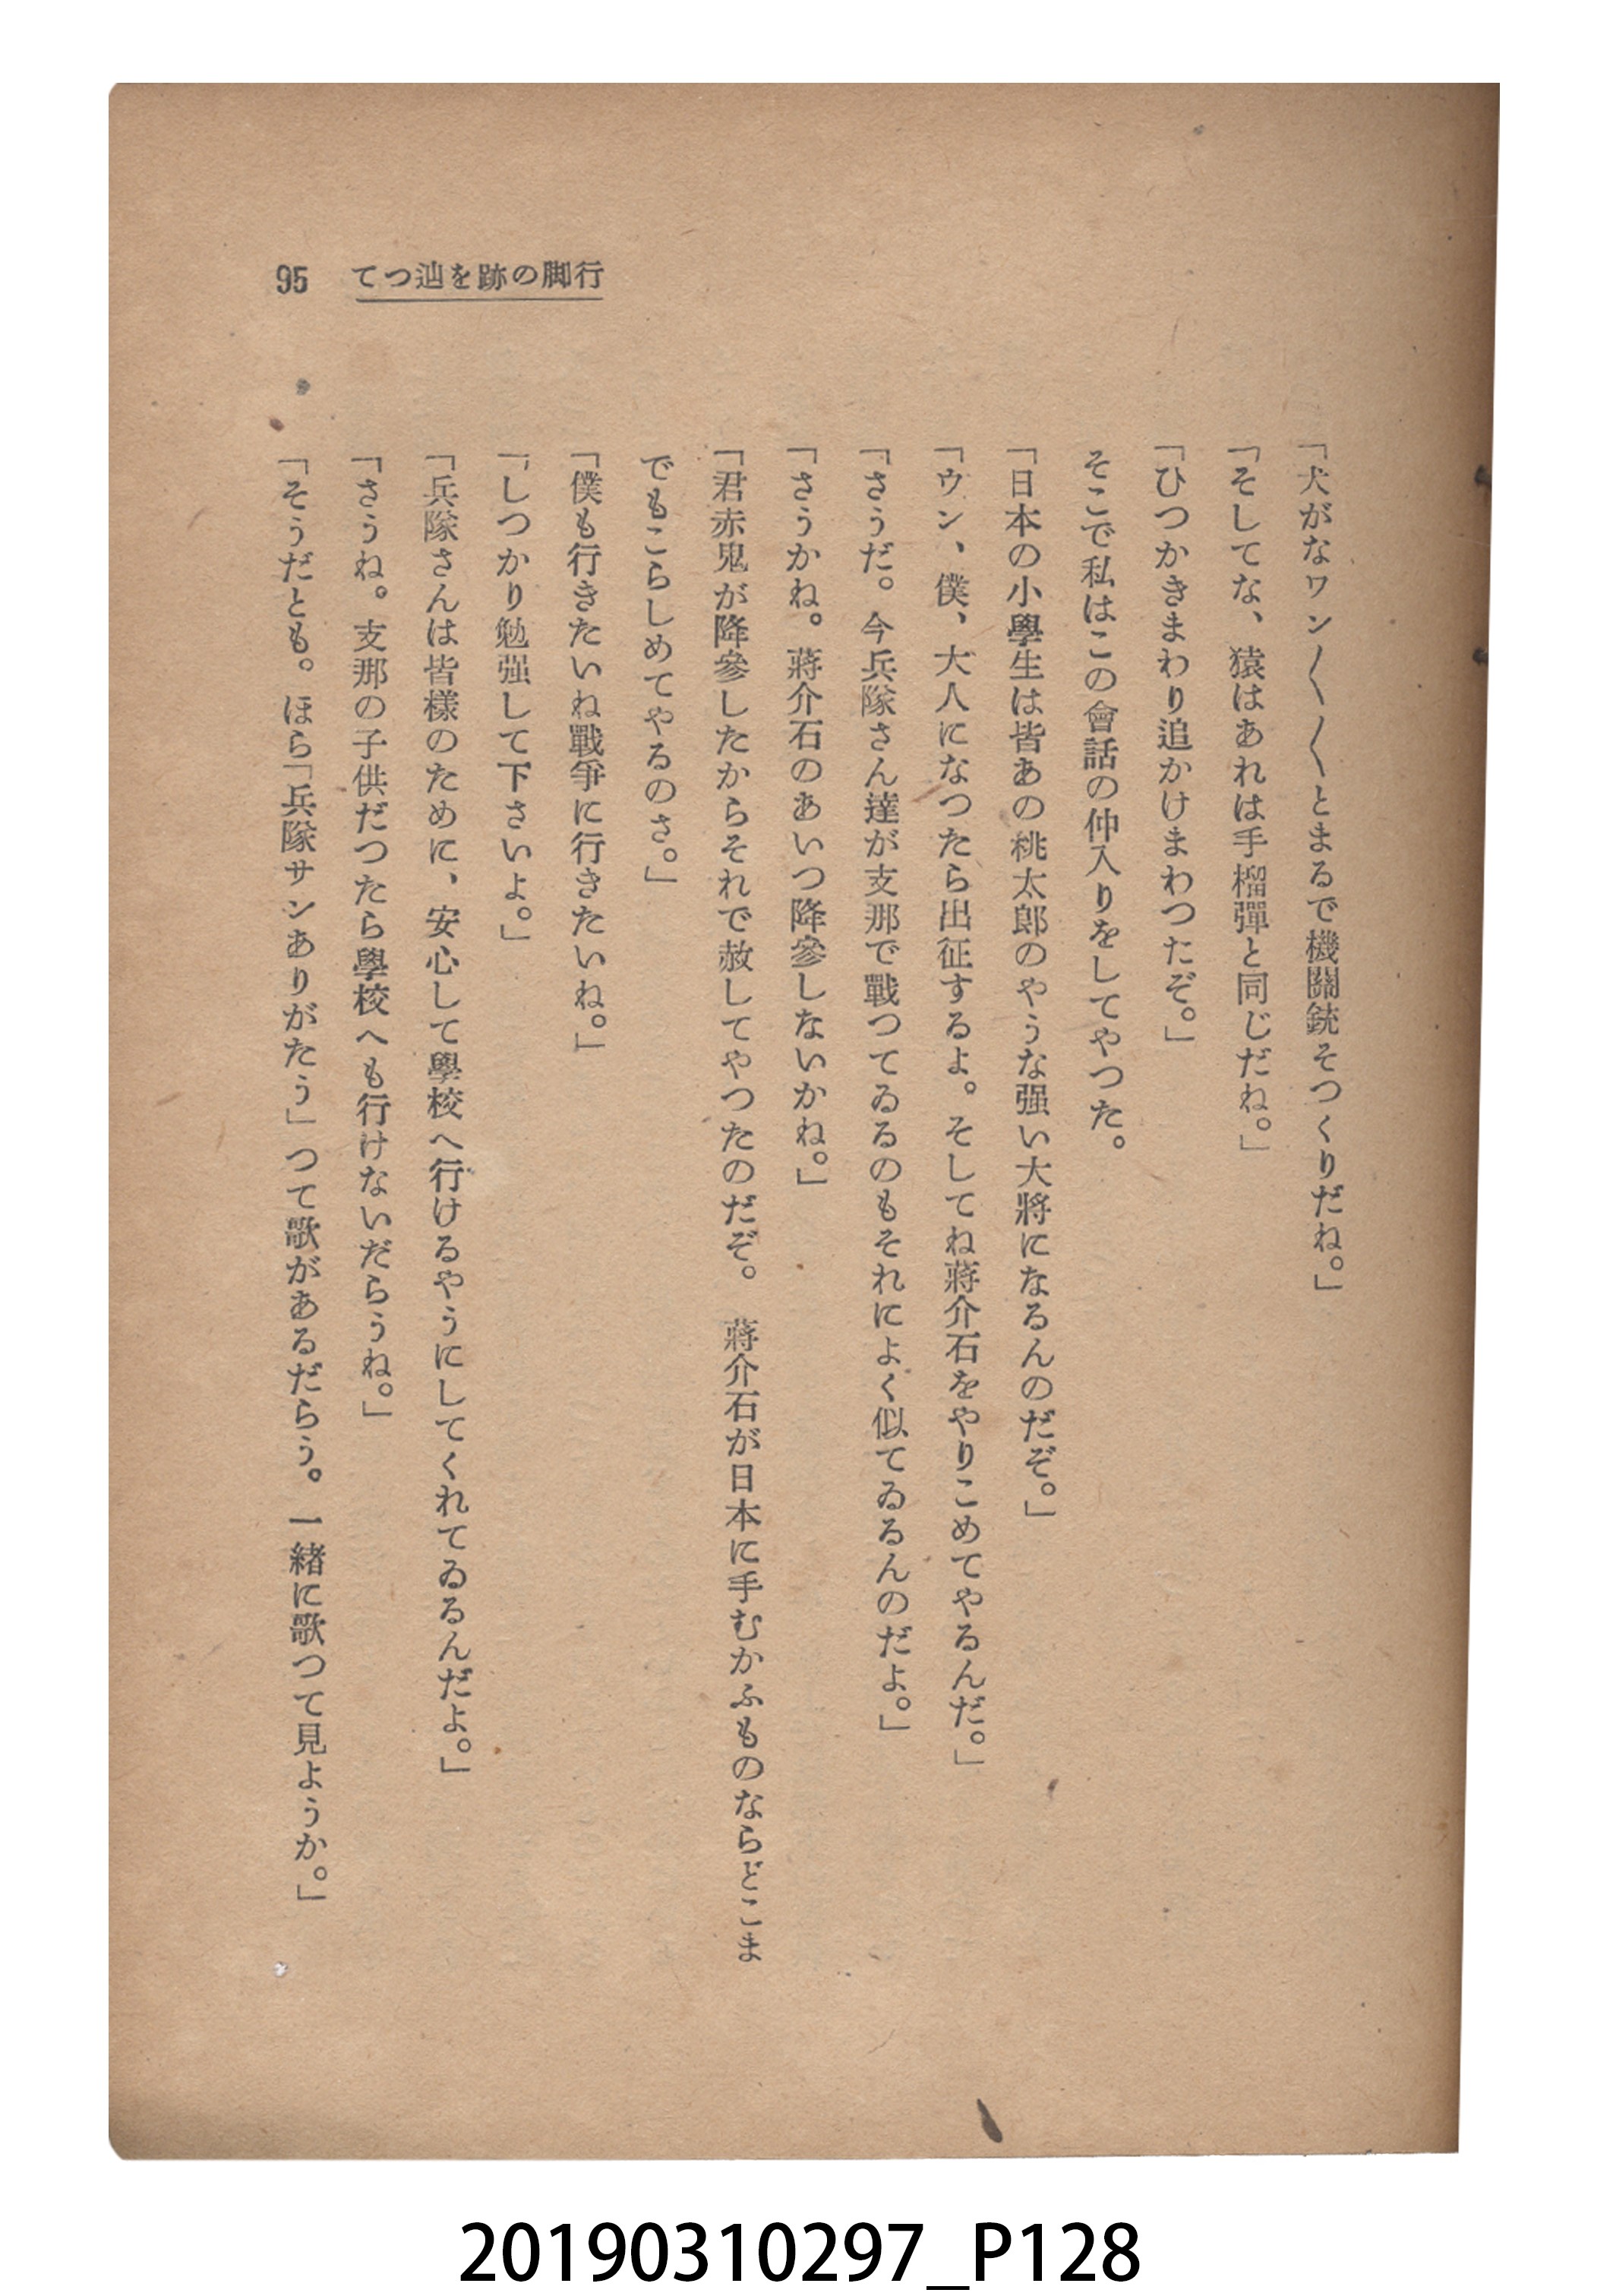 95 てつ辿を跡の脚行
「犬がなワン〳〵〳〵とまるで機關銃そつくりだね。」
「そしてな、猿はあれは手榴彈と同じだね。」
「ひつかきまわり追かけまわつたぞ。」
そこで私はこの會話の仲入りをしてやつた。
「日本の小學生は皆あの桃太郎のやうな强い大將になるんのだぞ。」
「ウン、僕、大人になつたら出征するよ。そしてね蔣介石をやりこめてやるんだ。」
「さうだ。今兵隊さん達が支那で戰つてゐるのもそれによく似てゐるんのだよ。」
「さうかね。蔣介石のあいつ降參しないかね。」
「君赤鬼が降參したからそれで赦してやつたのだぞ。 蔣介石が日本に手むかふものならどこま
でもこらしめてやるのさ。」
「僕も行きたいね戰爭に行きたいね。」
「しつかり勉强して下さいよ。」
「兵隊さんは皆樣のために、安心して學校へ行けるやうにしてくれてゐるんだよ。」
「さうね。支那の子供だつたら學校へも行けないだらうね。」
「そうだとも。ほら「兵隊サンありがたう」つて歌があるだらう。一緒に歌つて見ようか。」
20190310297_P128